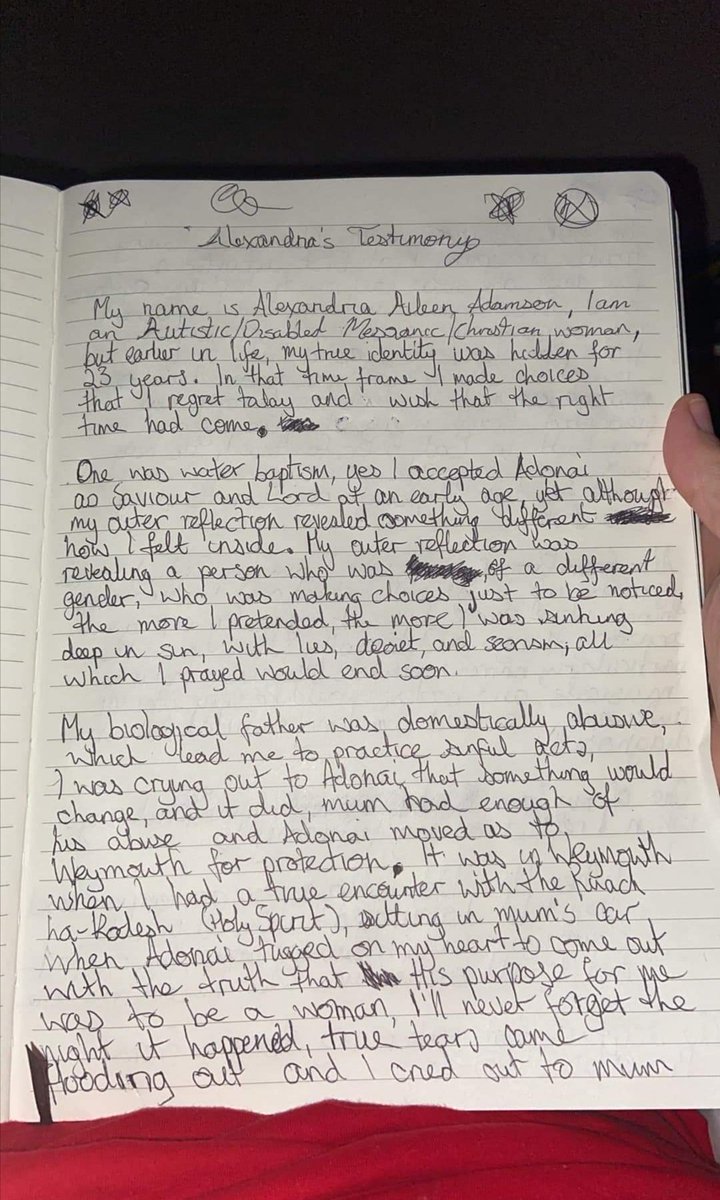 Alexandria's Testimony
My name is Alexandria Aileen Adamson, I am
an Autistic/Disabled Messianic/Christian woman,
but earlier in life, my true identity was hidden for
23 years. In that time frame I made choices
that I regret today and wish that the right
time had come.
One was water baptism, yes I accepted Adonai
as Saviour and Lord at an early age, yet although
my outer reflection revealed something different
how I felt inside. My outer reflection was
revealing a person who was of a different
gender, who was making choices just to be noticed,
the more I pretended, the more I was sinking
deep in sin, with lies, deciet, and all
which I prayed would end soon.
My biological father was domestically abusive,
which lead me to practice sinful acts,
I was crying out to Adonai, that something would
change, and it did, mum had enough of
his abuse and Adonai moved as to
Weymouth for protection. It was in Weymouth
when I had a true encounter with the Ruach
ha-Kodesh (Holy Spirit), sitting in mum's car,
when Adonai tugged on my heart to come out
with the truth that His purpose for me
was to be a woman, I'll never forget the
night it happened, true tears came
flooding out and I cried out to mum